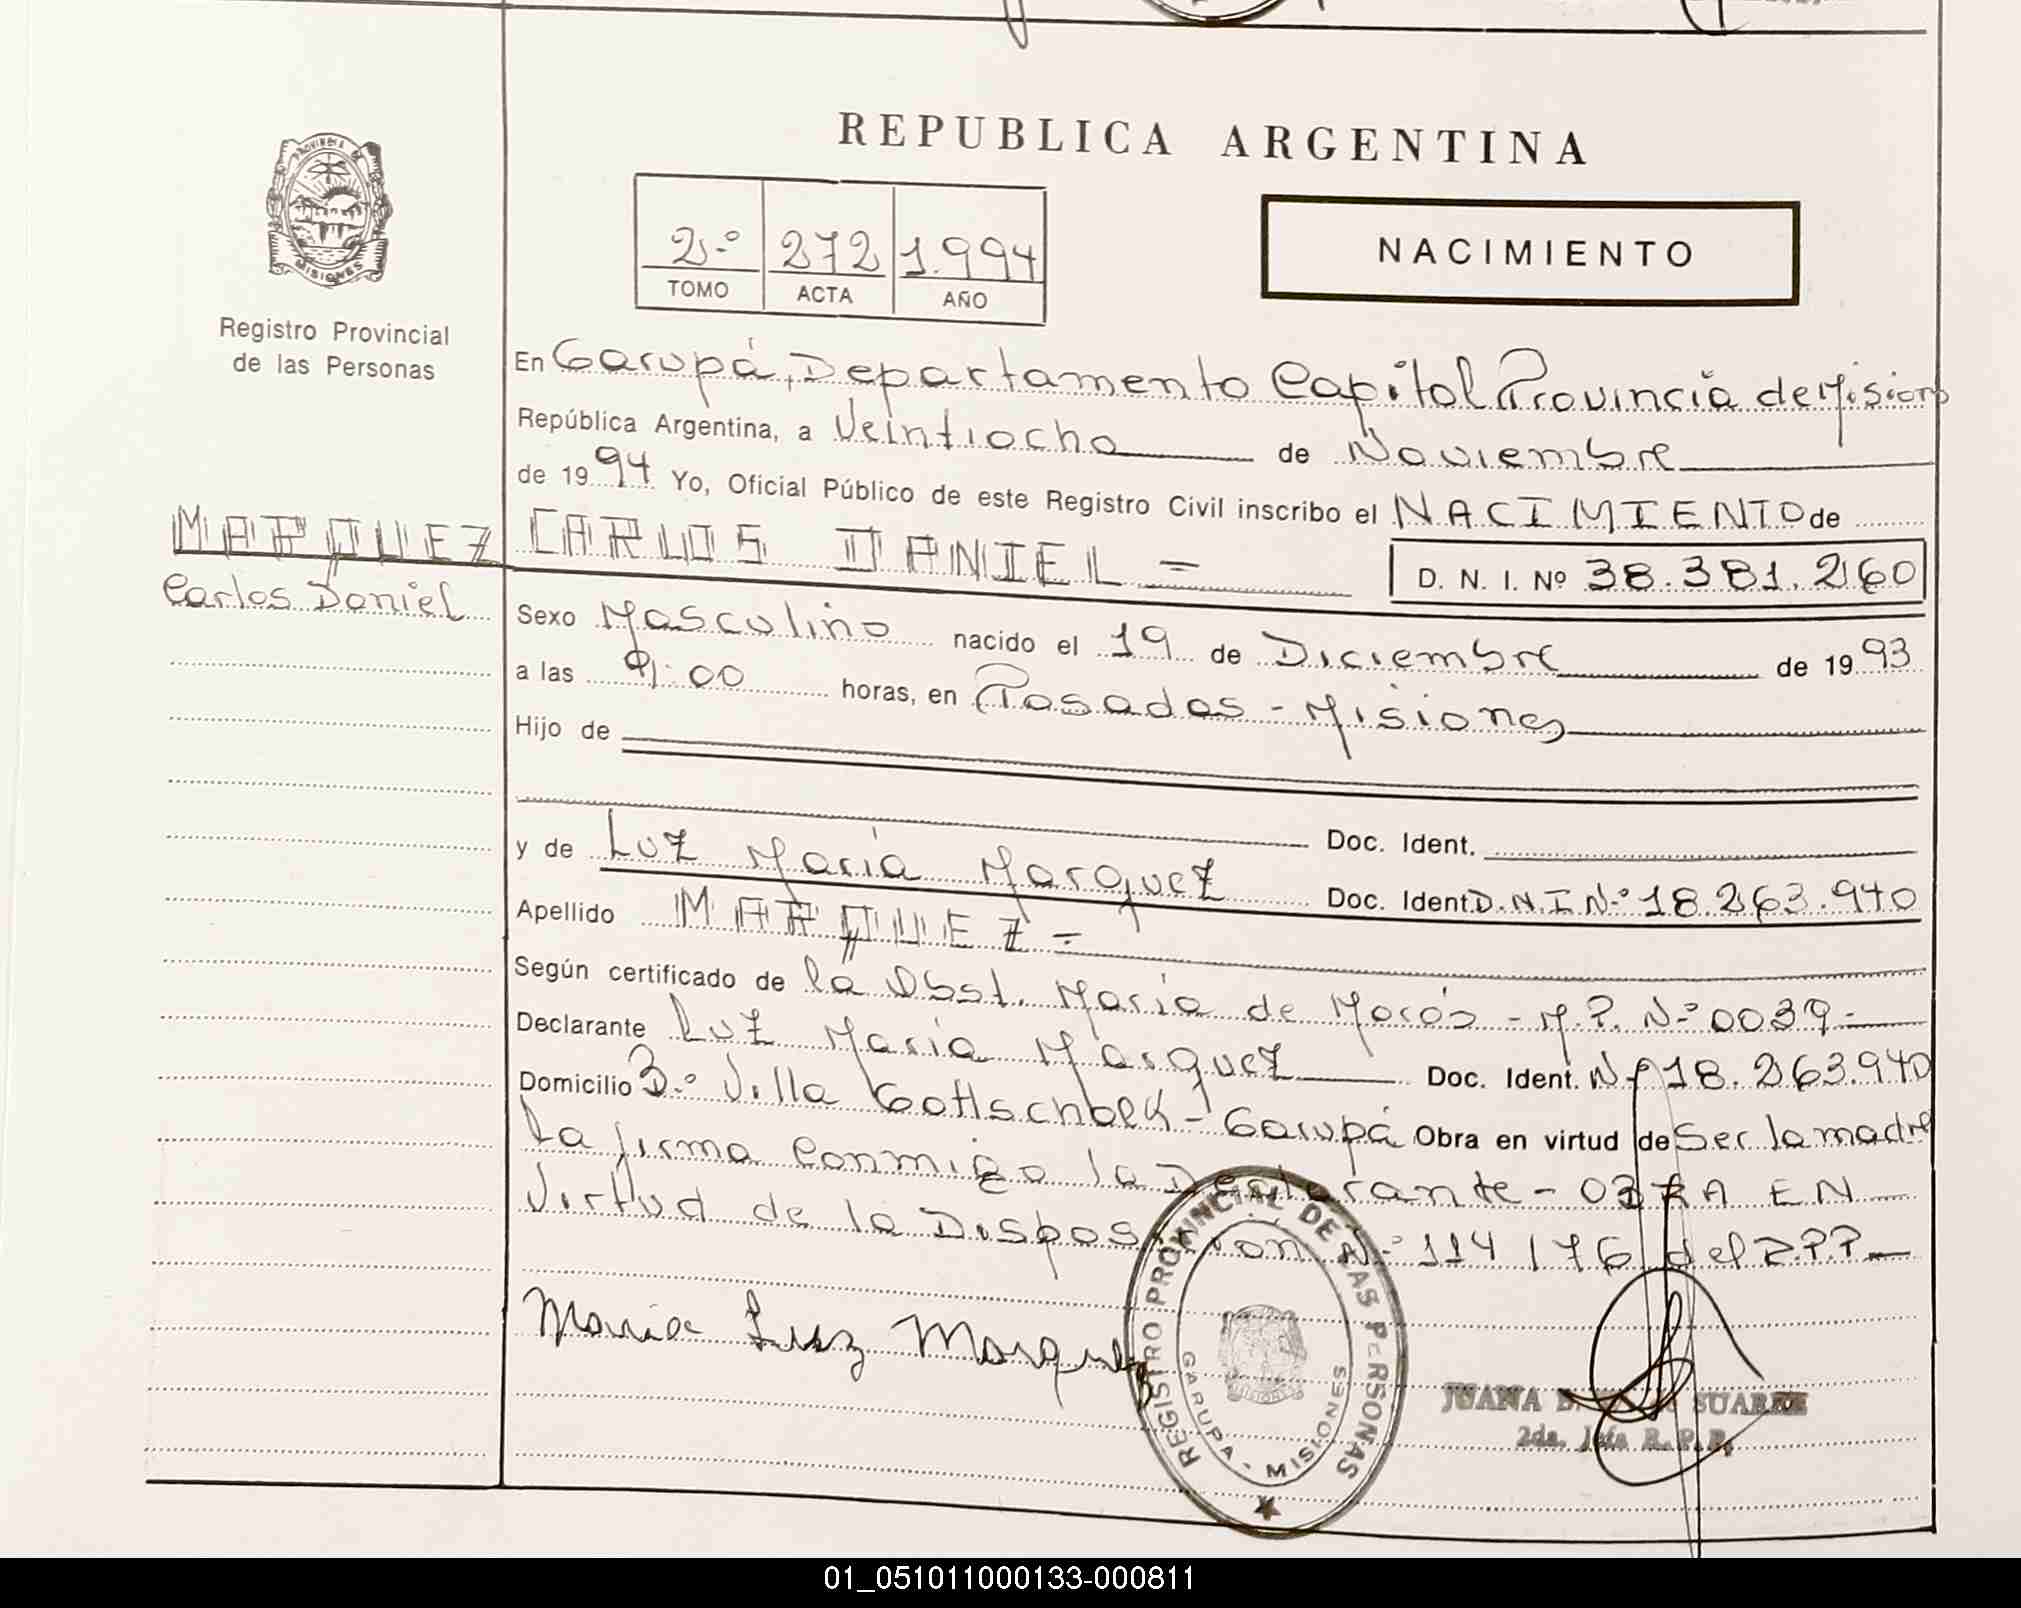 REPUBLICA ARGENTINA
PROVINCIA DE
MISIONES
Registro Provincial
de las Personas
2.º 272 1.994
TOMO ACTA AÑO
NACIMIENTO
En Garupá, Departamento Capital Provincia de Misiones
República Argentina, a Veintiocho de Noviembre
de 1994 Yo, Oficial Público de este Registro Civil inscribo el NACIMIENTO de
MARQUEZ CARLOS DANIEL =
D. N. I. Nº 38.381.260
Carlos Daniel
Sexo Masculino nacido el 19 de Diciembre de 1993
a las :00 horas, en Posadas - Misiones
Hijo de
Doc. Ident.
y de Luz María Marquez Doc. Ident D.N.I Nº 18.263.940
Apellido MARQUEZ =
Según certificado de la Obst. María de - M.P. Nº 0039 -
Declarante Luz María Marquez Doc. Ident. Nº 18.263.940
Domicilio Bº Villa - Garupá Obra en virtud de Ser la madre
La firma conmigo la Declarante - OBRA EN
Virtud de la Disposición Nº 114/76 del R.P.P
Maria Luz Marquez
REGISTRO PROVINCIAL DE LAS PERSONAS
GARUPA - MISIONES
JUANA SUAREZ
2da. Jefa R.P.P.
01_051011000133-000811